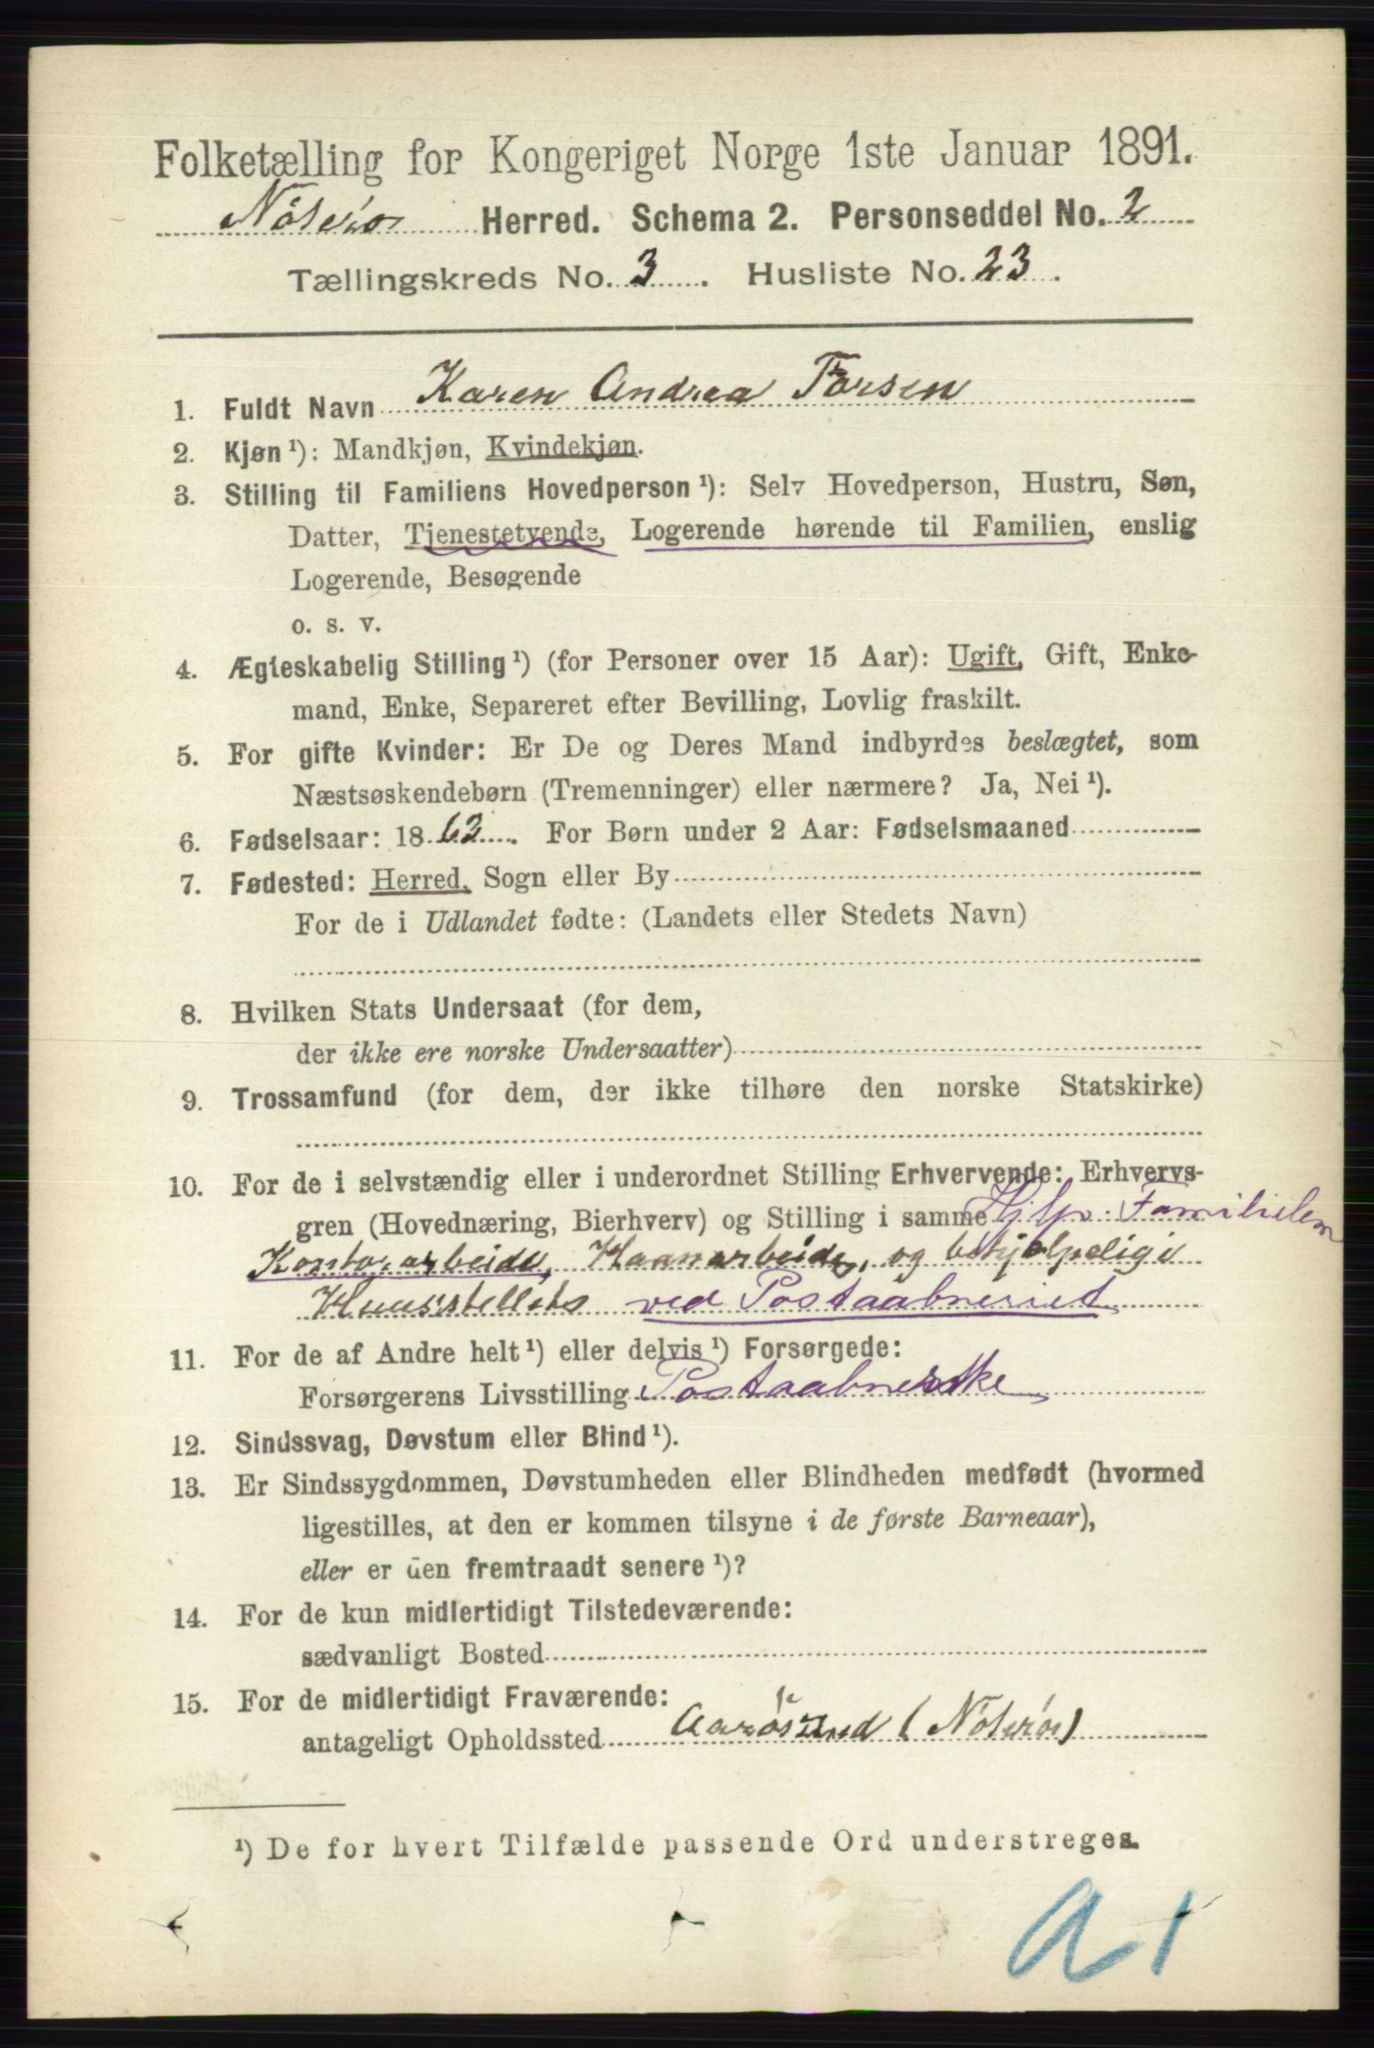 Folketælling for Kongeriget Norge 1ste Januar 1891.
Nöterö Herred. Schema 2. Personseddel No. 2
Tællingskreds No. 3. Husliste No. 23.
1. Fuldt Navn Karen Andrea Forsen
2. Kjøn ¹): Mandkjøn, Kvindekjøn.
3. Stilling til Familiens Hovedperson ¹): Selv Hovedperson, Hustru, Søn,
Datter, Tjenestetyende, Logerende hørende til Familien, enslig
Logerende, Besøgende
o. s. v.
4. Ægteskabelig Stilling ¹) (for Personer over 15 Aar): Ugift, Gift, Enke-
mand, Enke, Separeret efter Bevilling, Lovlig fraskilt.
5. For gifte Kvinder: Er De og Deres Mand indbyrdes beslægtet, som
Næstsøskendebørn (Tremenninger) eller nærmere? Ja, Nei ¹).
6. Fødselsaar: 1863. For Børn under 2 Aar: Fødselsmaaned
7. Fødested: Herred, Sogn eller By
For de i Udlandet fødte: (Landets eller Stedets Navn)
8. Hvilken Stats Undersaat (for dem,
der ikke ere norske Undersaatter)
9. Trossamfund (for dem, der ikke tilhøre den norske Statskirke)
10. For de i selvstændig eller i underordnet Stilling Erhvervende: Erhvervs-
gren (Hovednæring, Bierhverv) og Stilling i samme Hjlp. Familielem
Kontorarbeide, Haanarbeide, og behjælpelig i
Huusstellets ved Postaabneriet
11. For de af Andre helt ¹) eller delvis ¹) Forsørgede:
Forsørgerens Livsstilling Postaabnerske
12. Sindssvag, Døvstum eller Blind ¹).
13. Er Sindssygdommen, Døvstumheden eller Blindheden medfødt (hvormed
ligestilles, at den er kommen tilsyne i de første Barneaar),
eller er den fremtraadt senere ¹)?
14. For de kun midlertidigt Tilstedeværende:
sædvanligt Bosted
15. For de midlertidigt Fraværende:
antageligt Opholdssted Aarösund (Nöterö)
¹) De for hvert Tilfælde passende Ord understreges.
a 1